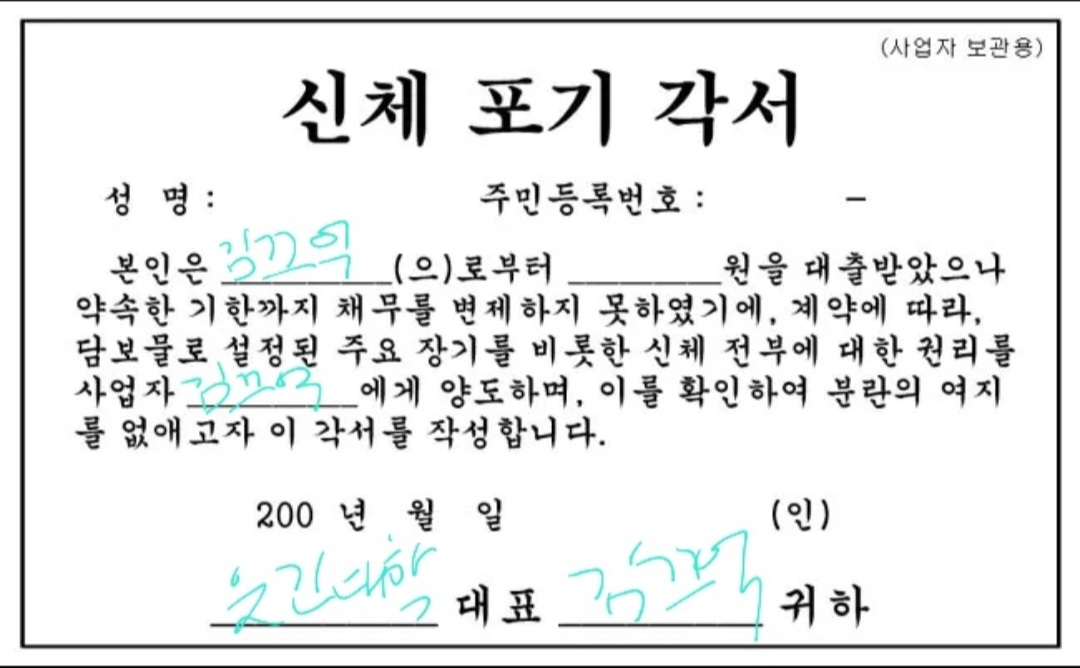 (사업자 보관용)
신체 포기 각서
성 명 : 주민등록번호 : –
본인은 김끄억 (으)로부터 ________원을 대출받았으나
약속한 기한까지 채무를 변제하지 못하였기에, 계약에 따라,
담보물로 설정된 주요 장기를 비롯한 신체 전부에 대한 권리를
사업자 김끄억 에게 양도하며, 이를 확인하여 분란의 여지
를 없애고자 이 각서를 작성합니다.
200 년 월 일 (인)
웃긴대학 대표 김끄억 귀하